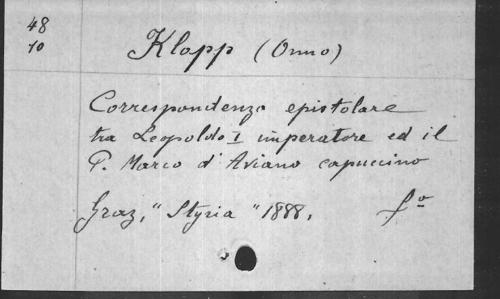 48
10
Klopp (Onno)
Correspondenza epistolare
tra Leopoldo I imperatore ed il
P. Marco d'Aviano capuccino
Graz, "Styria" 1888.
f.o